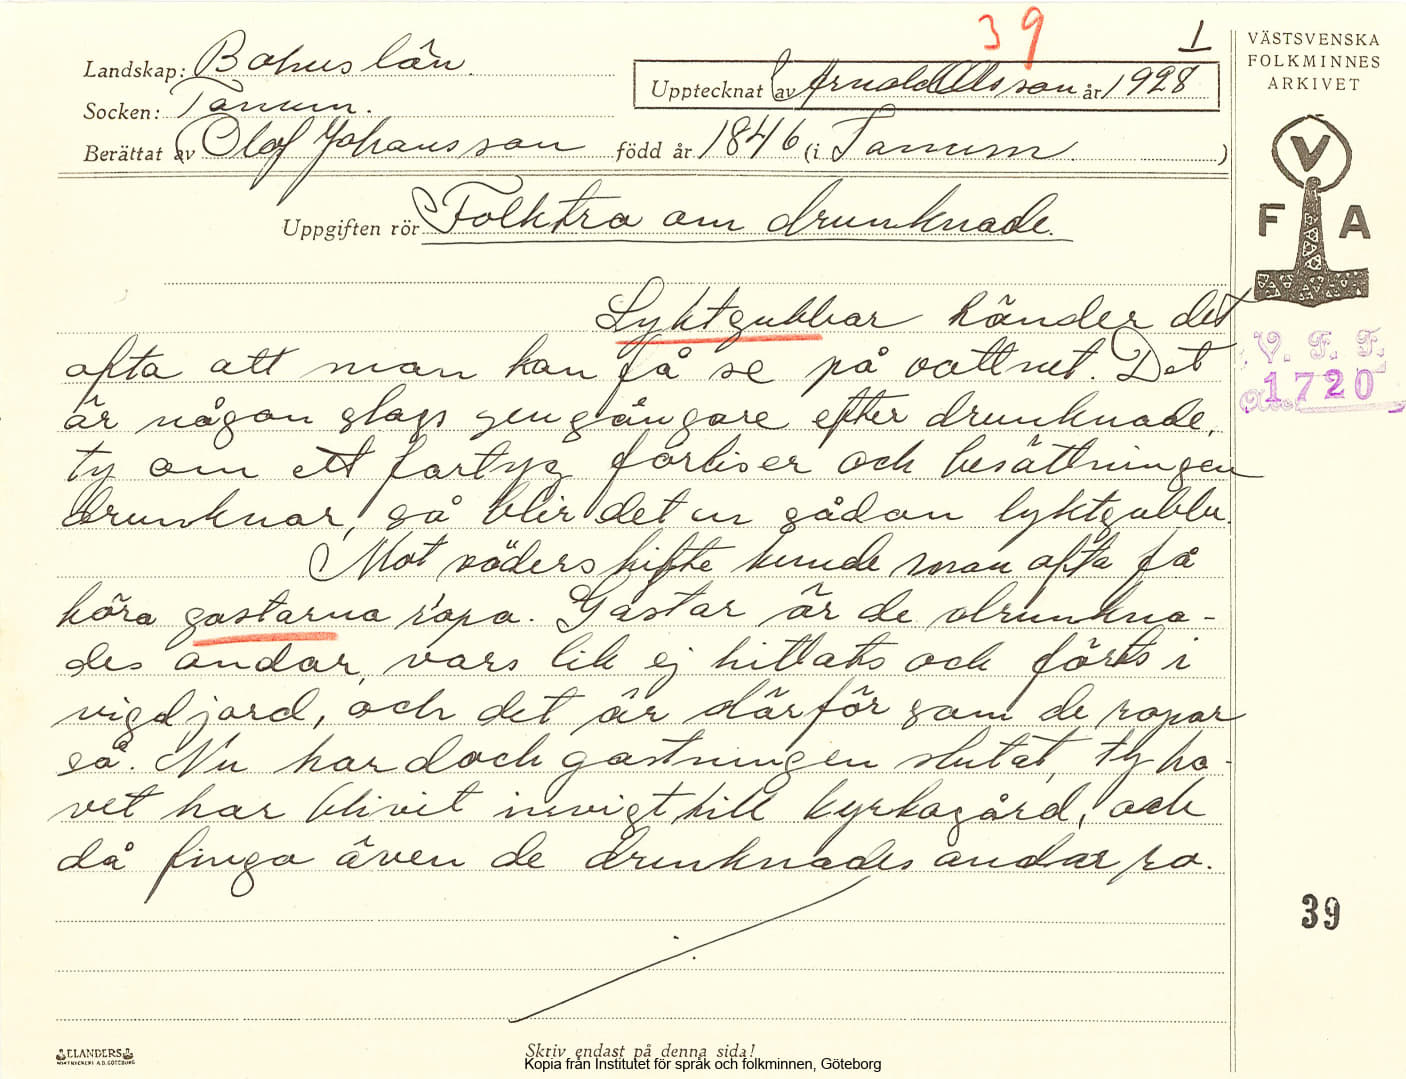 39
1
Landskap: Bohuslän
Upptecknat av Arnold Olsson år 1928
Socken: Tanum.
Berättat av Olof Johansson född år 1846 (i Tanum )
Uppgiften rör Folktro om drunknade.
VÄSTSVENSKA
FOLKMINNES
ARKIVET
V
F A
V. F. F.
1720
Lyktgubbar händer det
ofta att man kan få se på vattnet. Det
är någon slags gengångare efter drunknade,
ty om ett fartyg förliser och besättningen
drunknar, så blir det en sådan lyktgubbe.
Mot väderskifte kunde man ofta få
höra gastarna ropa. Gastar är de drunkna-
des andar, vars lik ej hittats och förts i
vigd jord, och det är därför som de ropar
så. Nu har doch gastningen slutat, ty ha-
vet har blivit invigt till kyrkogård, och
då finga även de drunknades andar ro.
39
ELANDERS
Skriv endast på denna sida!
Kopia från Institutet för språk och folkminnen, Göteborg